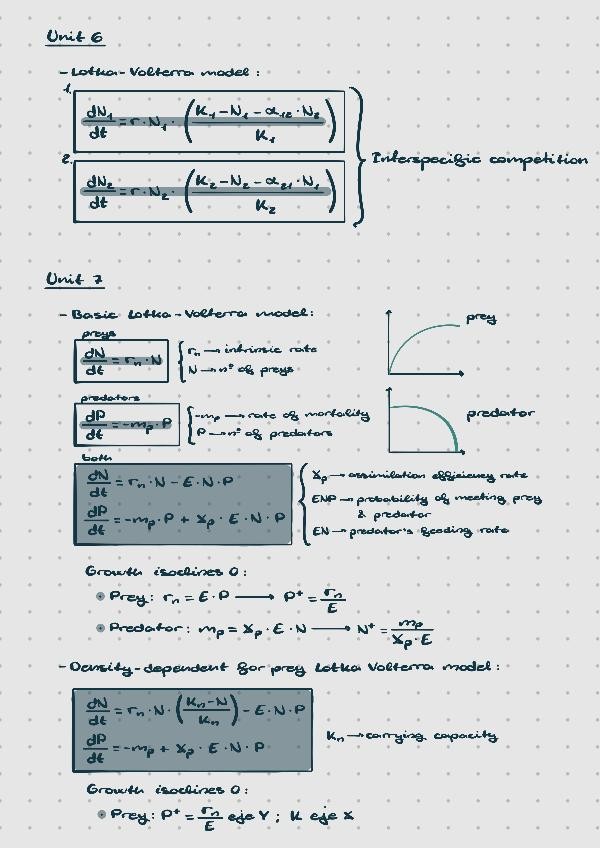 Unit 6
- Lotka-Volterra model:
1. dN₁/dt = r·N₁·((K₁-N₁-α₁₂·N₂)/K₁)
2. dN₂/dt = r·N₂·((K₂-N₂-α₂₁·N₁)/K₂)
Interspecific competition
Unit 7
- Basic Lotka-Volterra model:
preys
dN/dt = rₙ·N
rₙ → intrinsic rate
N → nº of preys
prey
predators
dP/dt = -mₚ·P
-mₚ → rate of mortality
P → nº of predators
predator
both
dN/dt = rₙ·N - E·N·P
dP/dt = -mₚ·P + Xₚ·E·N·P
Xₚ → assimilation efficiency rate
ENP → probability of meeting prey
& predator
EN → predator's feeding rate
Growth isoclines 0:
• Prey: rₙ = E·P → P* = rₙ/E
• Predator: mₚ = Xₚ·E·N → N* = mₚ/(Xₚ·E)
- Density-dependent for prey Lotka Volterra model:
dN/dt = rₙ·N·((Kₙ-N)/Kₙ) - E·N·P
dP/dt = -mₚ + Xₚ·E·N·P
Kₙ → carrying capacity
Growth isoclines 0:
• Prey: P* = rₙ/E eje Y; K eje X